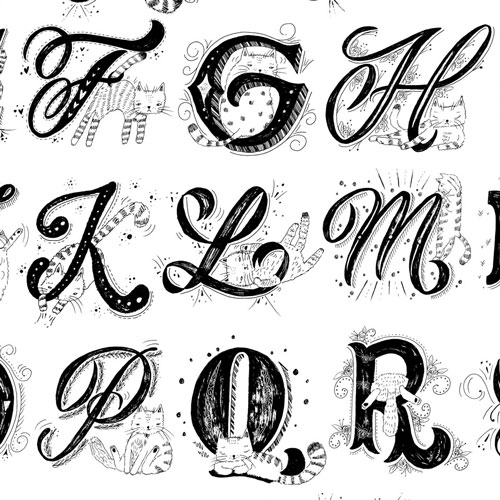 F G H
K L M
P Q R